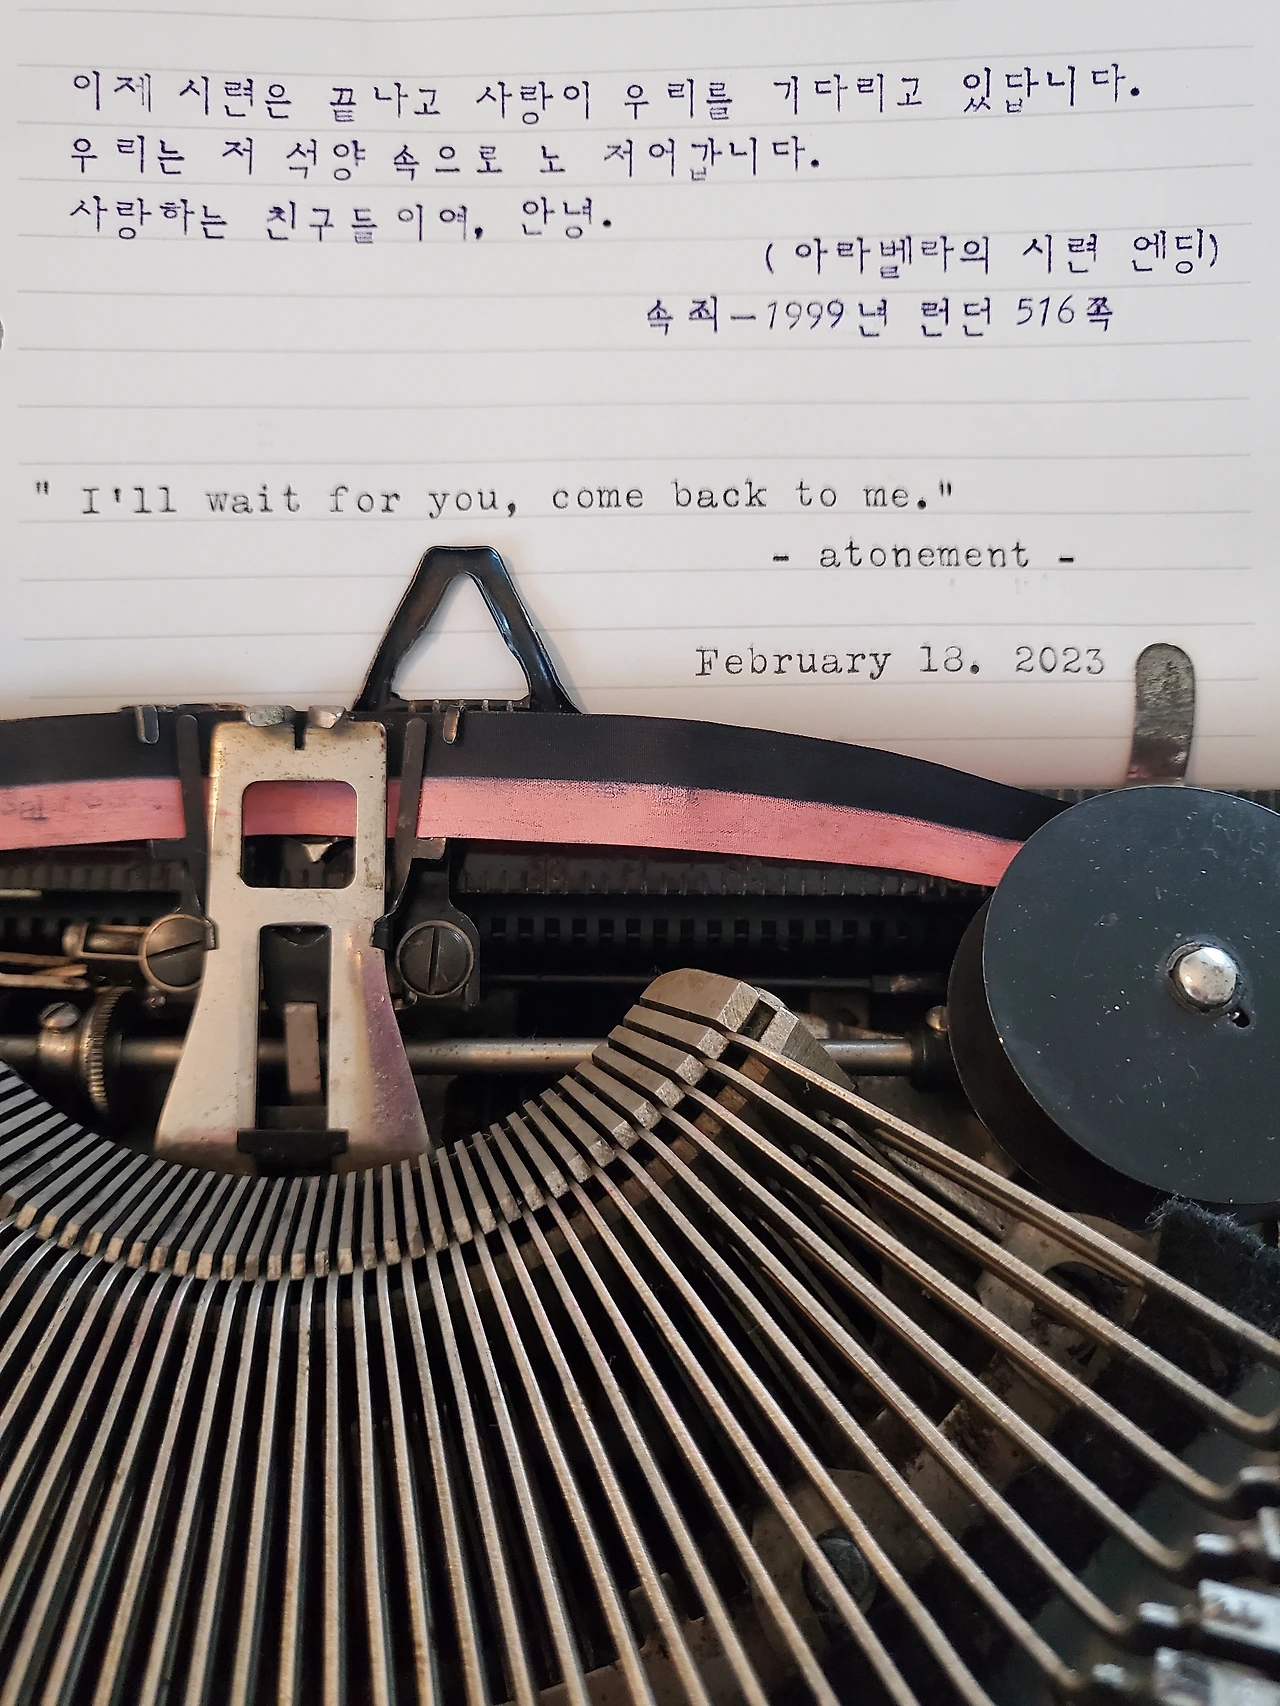 이제 시련은 끝나고 사랑이 우리를 기다리고 있답니다.
우리는 저 석양 속으로 노 저어갑니다.
사랑하는 친구들이여, 안녕.
(아라벨라의 시련 엔딩)
속죄-1999년 런던 516쪽
" I'll wait for you, come back to me."
- atonement -
February 18. 2023